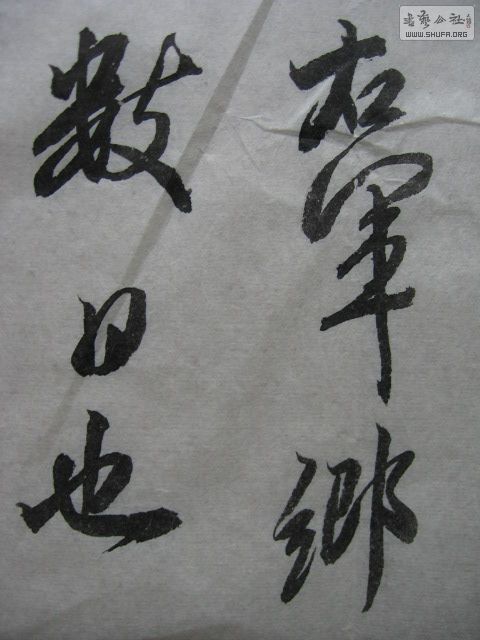 右軍鄉
數日也
書藝公社
WWW.SHUFA.ORG